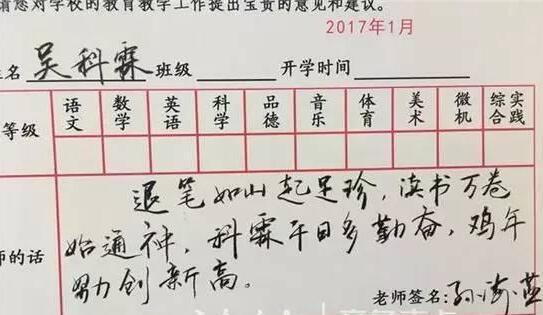 请您对学校的教育教学工作提出宝贵的意见和建议。
2017年1月
生名 吴科霖 班级 开学时间
语文 数学 英语 科学 品德 音乐 体育 美术 微机 综合实践
等级
退笔如山起足珍，读书万卷
始通神，科霖平日多勤奋，鸡年
努力创新高。
师的话
老师签名: